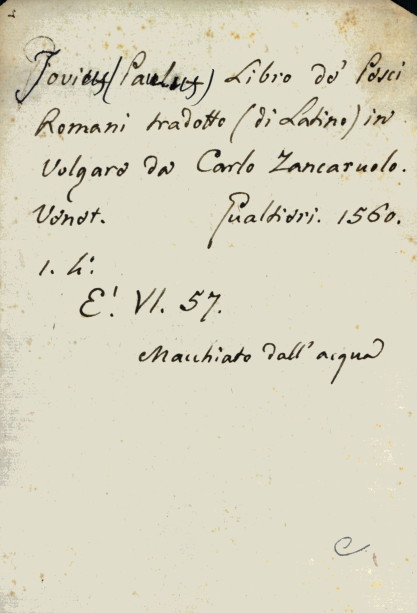 Jovius (Paulus) Libro de' Pesci
Romani tradotto (di Latino) in
Volgare da Carlo Zancaruolo.
Venet. Gualtieri. 1560.
1. 4º.
E! VI. 57.
Macchiato dall'acqua
C